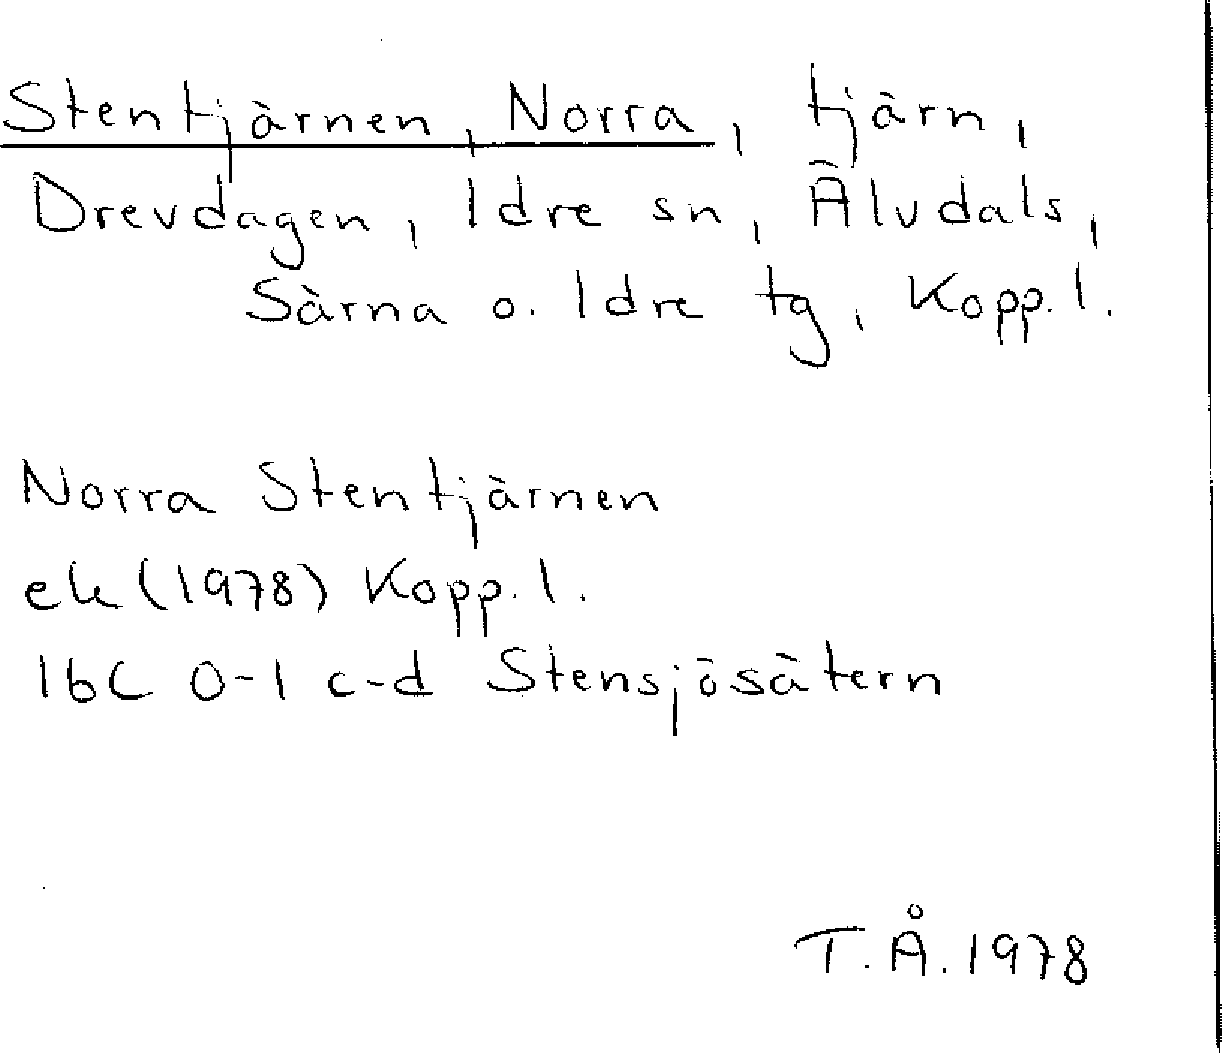 Stentjärnen, Norra, tjärn,
Drevdagen, Idre sn, Älvdals,
Särna o. Idre tg, Kopp. l.
Norra Stentjärnen
ek (1978) Kopp. l.
16C 0-1 c-d Stensjösätern
T.Å. 1978